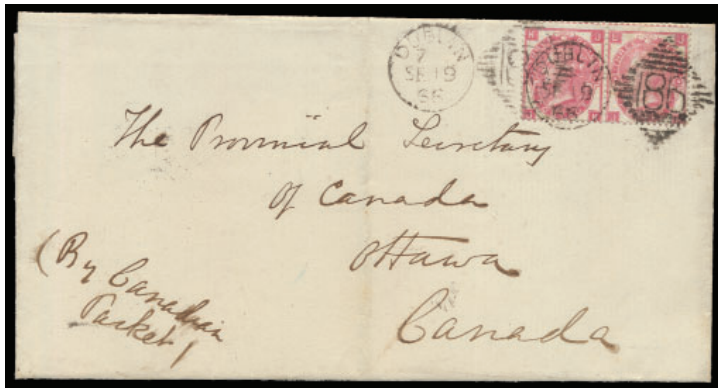 DUBLIN
7
SE 19
66
DUBLIN
186
The Provinial Secretary
of Canada
Ottawa
Canada
(By Canadian
Packet)